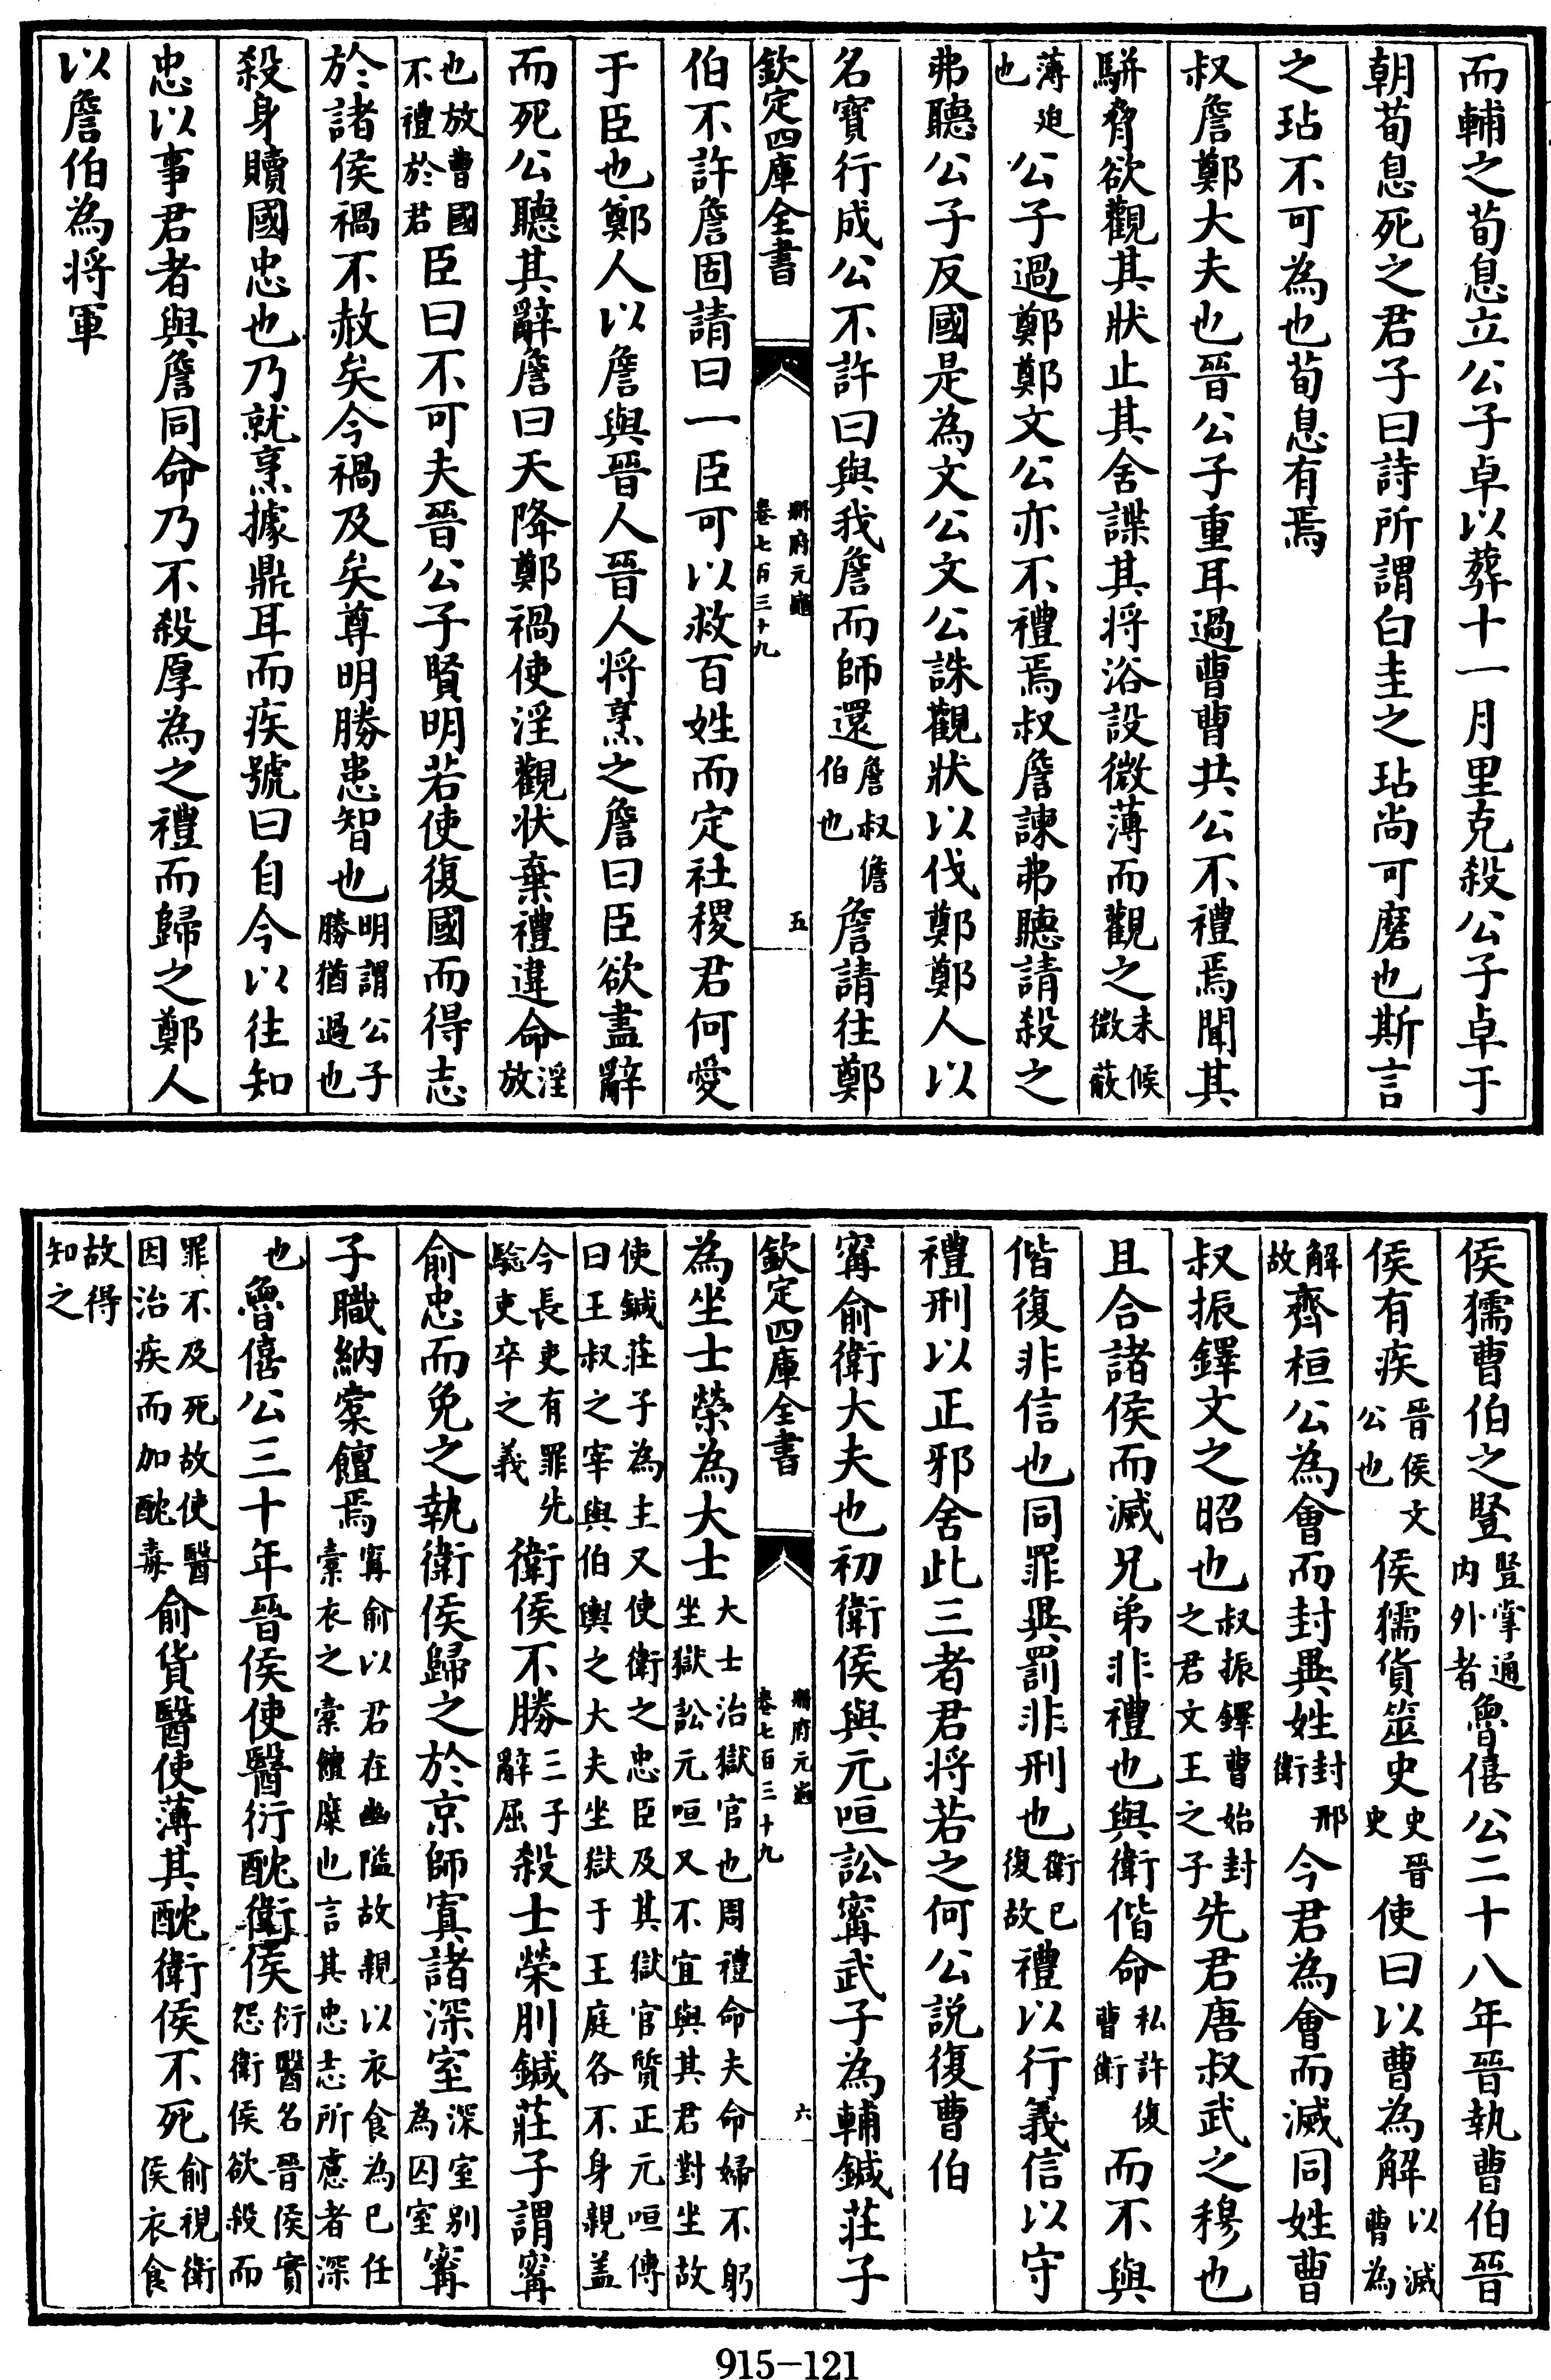 而輔之荀息立公子卓以葬十一月里克殺公子卓于
朝荀息死之君子曰詩所謂白圭之玷尚可磨也斯言
之玷不可為也荀息有焉
叔詹鄭大夫也晉公子重耳過曹曹共公不禮焉聞其
駢脅欲觀其狀止其舍諜其将浴設微薄而觀之未候微蔽
薄迫也公子過鄭鄭文公亦不禮焉叔詹諫弗聽請殺之
弗聽公子反國是為文公文公誅觀狀以伐鄭鄭人以
名寶行成公不許曰與我詹而師還詹叔儋伯也詹請往鄭
欽定四庫全書
冊府元龜
卷七百三十九
五
伯不許詹固請曰一臣可以救百姓而定社稷君何愛
于臣也鄭人以詹與晉人晉人将烹之詹曰臣欲盡辭
而死公聽其辭詹曰天降鄭禍使淫觀狀棄禮違命淫放
也放曹國不禮於君臣曰不可夫晉公子賢明若使復國而得志
於諸侯禍不赦矣今禍及矣尊明勝患智也明謂公子勝猶過也
殺身贖國忠也乃就烹據鼎耳而疾號曰自今以往知
忠以事君者與詹同命乃不殺厚為之禮而歸之鄭人
以詹伯為将軍
侯獳曹伯之豎豎掌通内外者魯僖公二十八年晉執曹伯晉
侯有疾晉侯文公也侯獳貨筮史史晉史使曰以曹為解以滅曹為
解故齊桓公為會而封異姓封邢衛今君為會而滅同姓曹
叔振鐸文之昭也叔振鐸曹始封之君文王之子先君唐叔武之穆也
且合諸侯而滅兄弟非禮也與衛偕命私許復曹衛而不與
偕復非信也同罪異罰非刑也衛已復故禮以行義信以守
禮刑以正邪舍此三者君将若之何公説復曹伯
甯俞衛大夫也初衛侯與元咺訟甯武子為輔鍼莊子
欽定四庫全書
冊府元龜
卷七百三十九
六
為坐士榮為大士大士治獄官也周禮命夫命婦不躬坐獄訟元咺又不宜與其君對坐故
使鍼莊子為主又使衛之忠臣及其獄官質正元咺傳曰王叔之宰與伯輿之大夫坐獄于王庭各不身親盖
今長吏有罪先驗吏卒之義衛侯不勝三子辭屈殺士榮刖鍼莊子謂甯
俞忠而免之執衛侯歸之於京師寘諸深室深室别為囚室甯
子職納槖饘焉甯俞以君在幽隘故親以衣食為已任槖衣之槖饘糜也言其忠志所慮者深
也魯僖公三十年晉侯使醫衍酖衛侯衍醫名晉侯實怨衛侯欲殺而
罪不及死故使醫因治疾而加酖毒俞貨醫使薄其酖衛侯不死俞視衛侯衣食
故得知之
915-121